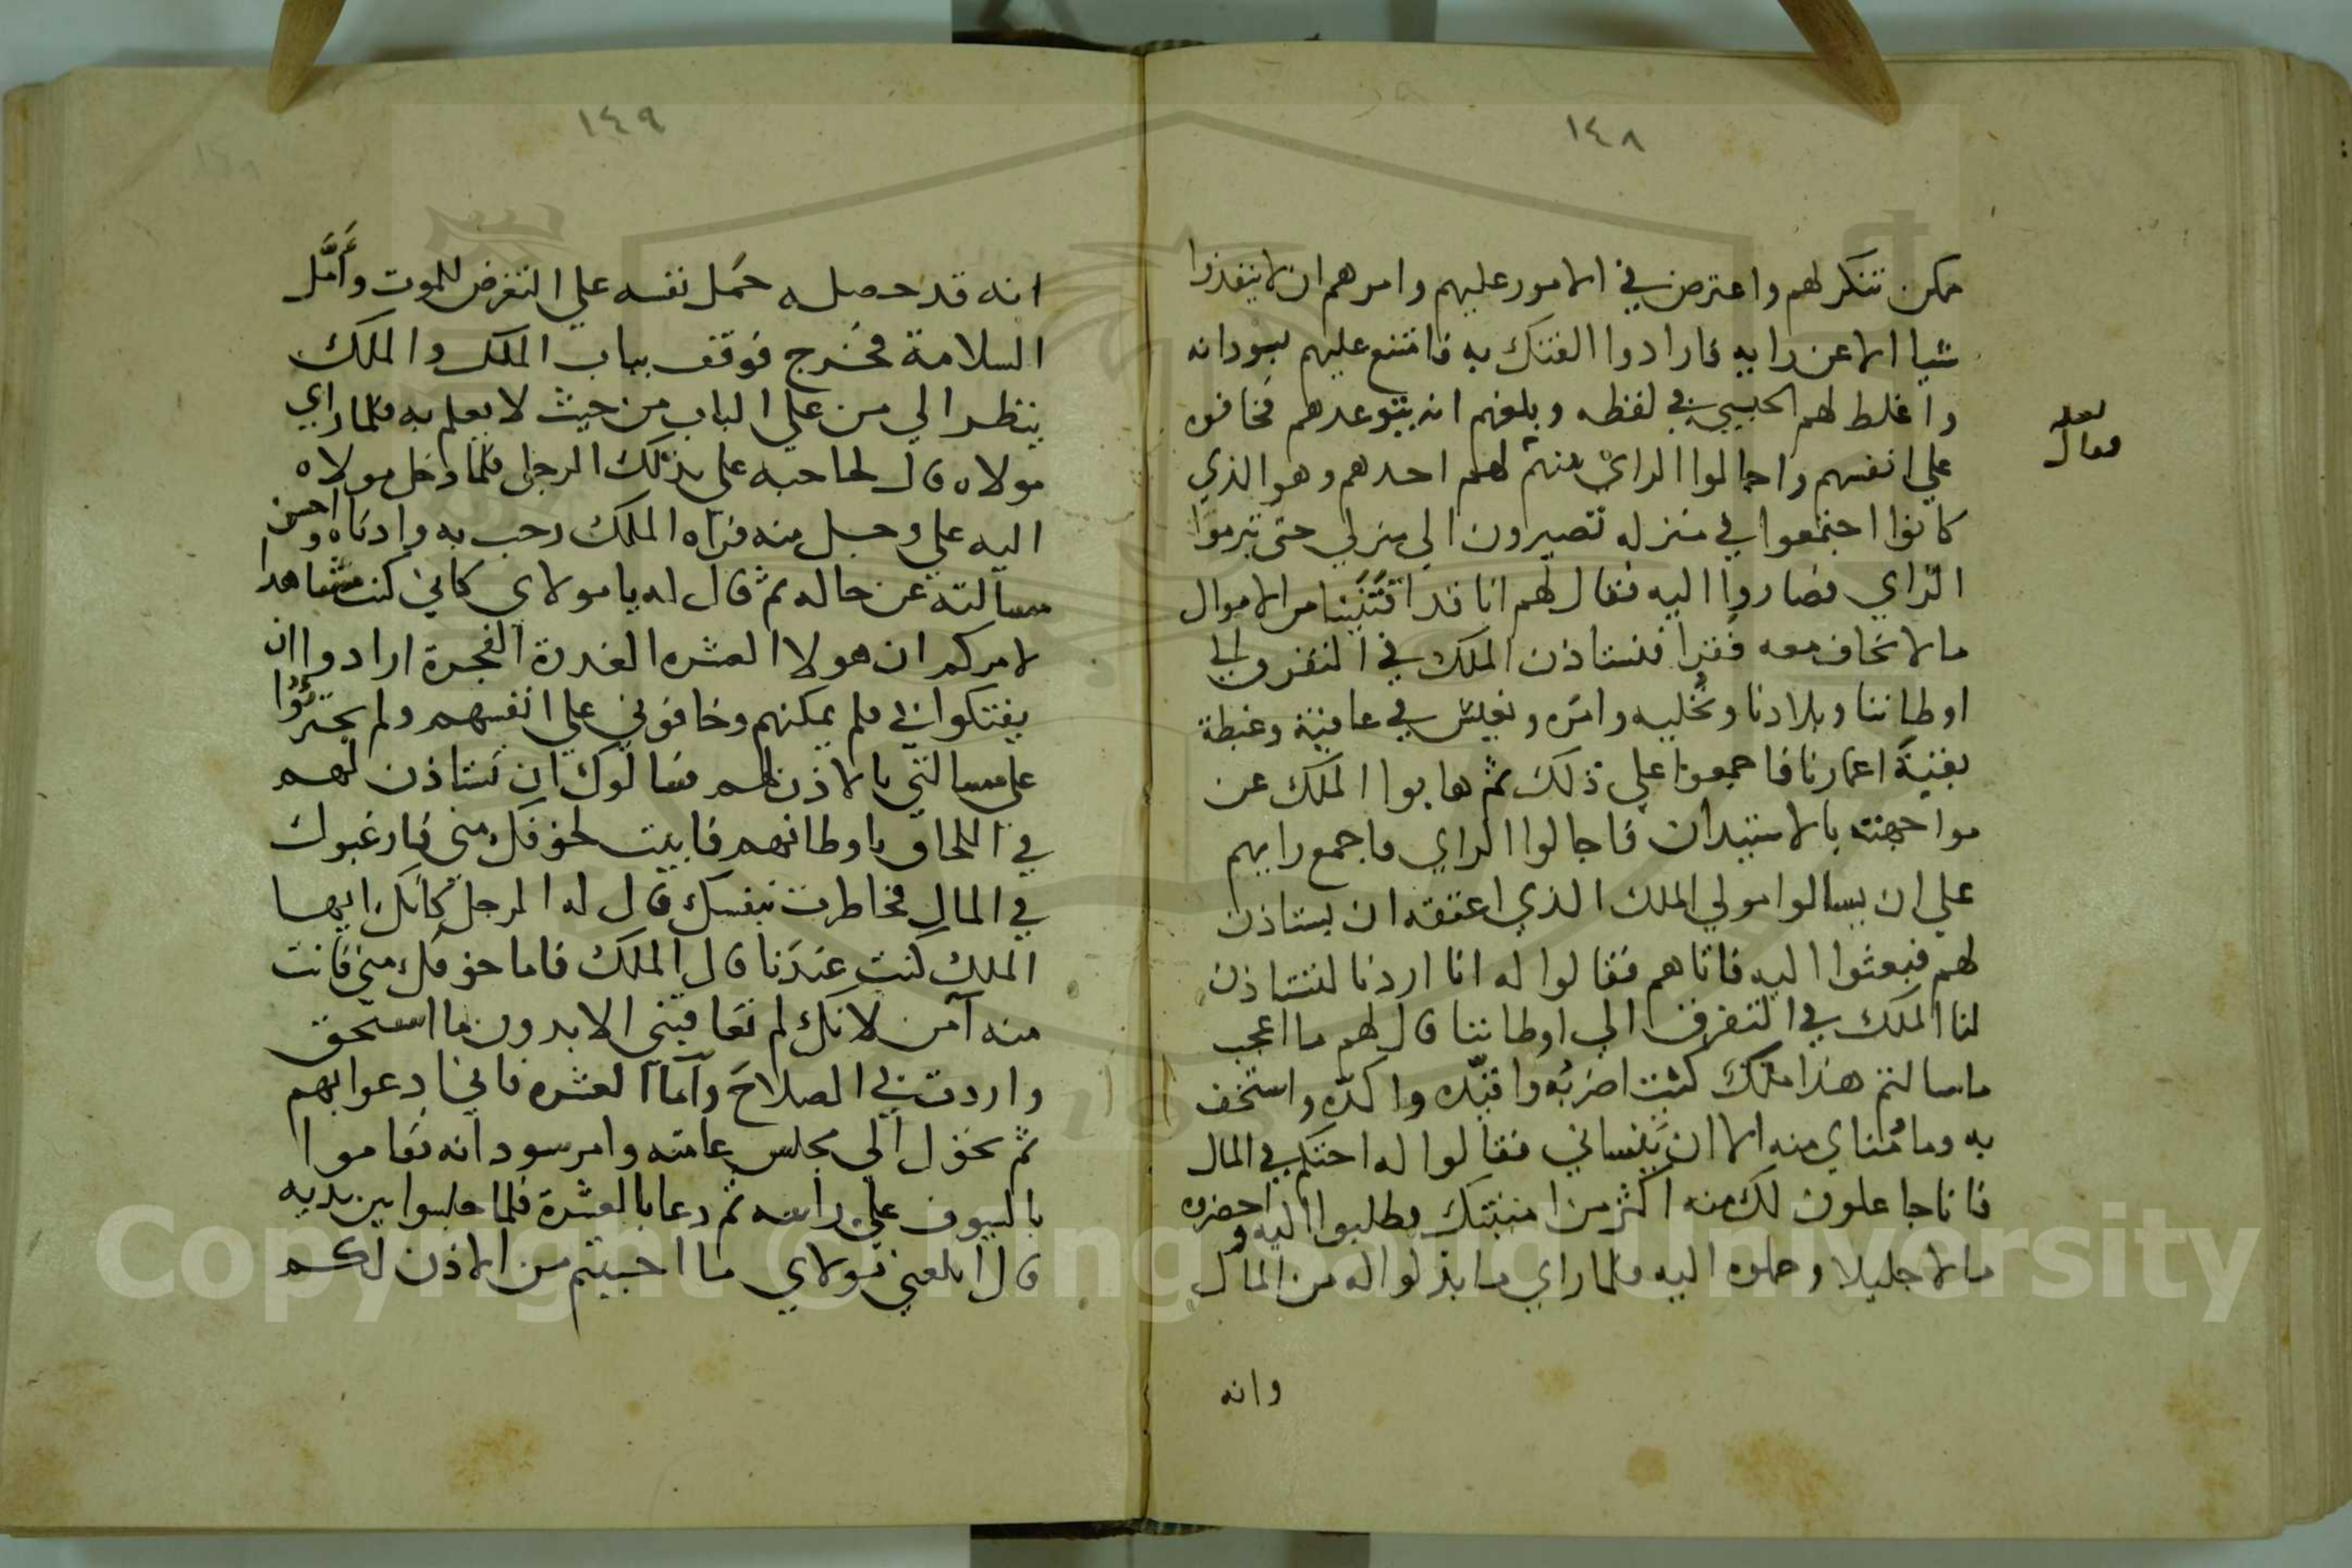 ١٤٨
مكن تنكر لهم واعترض في الامور عليهم وامرهم ان لا ينفذوا
شيا الا عن رايه فارادوا الفتك به فامتنع عليهم بسودانه
واغلط لهم الحبسي في لفظه وبلغهم انه يتوعدهم فخافوه
علي انفسهم واجالوا الراي منهم لهم احدهم وهو الذي
لعله
فقال
كانوا اجتمعوا في منزله تصيرون الي منزلي حتى تبرموا
الراي فصاروا اليه فقال لهم انا قد اقتنينا من الاموال
ما لا نخاف معه فقرا فنستاذن الملك في التفرق الي
اوطاننا وبلادنا ونخليه وامره ونعيش في عافية وغبطة
بقية اعمارنا فاجمعوا علي ذلك ثم هابوا الملك عن
مواجهته بالاستيذان فاجالوا الراي فاجمع رايهم
علي ان يسالوا مولي الملك الذي اعتقه ان يستاذن
لهم فبعثوا اليه فاتاهم فقالوا له انا اردنا لتستاذن
لنا الملك في التفرق الي اوطاننا قال لهم ما اعجب
ما سالتم هذا ملك كنت اضربه واقيده واكده واستخف
به وما مناي منه الا ان ينساني فقالوا له احتكم في المال
فانا جاعلون لك منه اكثر من امنيتك وطلبوا اليه واحضروه
مالا جليلا وحملوه اليه فلما راي ما بذلوا له من المال
وانه
١٤٩
انه قد حصل له حمل نفسه علي التعرض للموت وأمل
السلامة فخرج فوقف بباب الملك والملك
ينظر الي من علي الباب من حيث لا يعلم به فلما راي
مولاه قال لحاجبه علي بذلك الرجل فلما دخل مولاه
اليه علي وجل منه فراه الملك رحب به وادناه واحسن
مسالته عن حاله ثم قال له يا مولاي كاني كنت مشاهدا
لامركم ان هولا العشره الغدرة الفجرة ارادوا ان
يفتكوا بي فلم يمكنهم وخافوني علي انفسهم ولم يجترؤا
علي مسالتي بالاذن لهم فسالوك ان تستاذن لهم
في اللحاق باوطانهم فابيت لخوفك مني فارغبوك
في المال فخاطرت بنفسك قال له الرجل كانك ايها
الملك كنت عندنا قال الملك فاما خوفك مني فانت
منه آمن لانك لم تعاقبني الا بدون ما استحق
واردت بي الصلاح وأما العشره فاني ادعوا بهم
ثم تحول الي مجلس عامته وامر سودانه فقاموا
بالسيوف علي راسه ثم دعا بالعشرة فلما جلسوا بين يديه
قال ابلغني مولاي ما احببتم من الاذن لكم